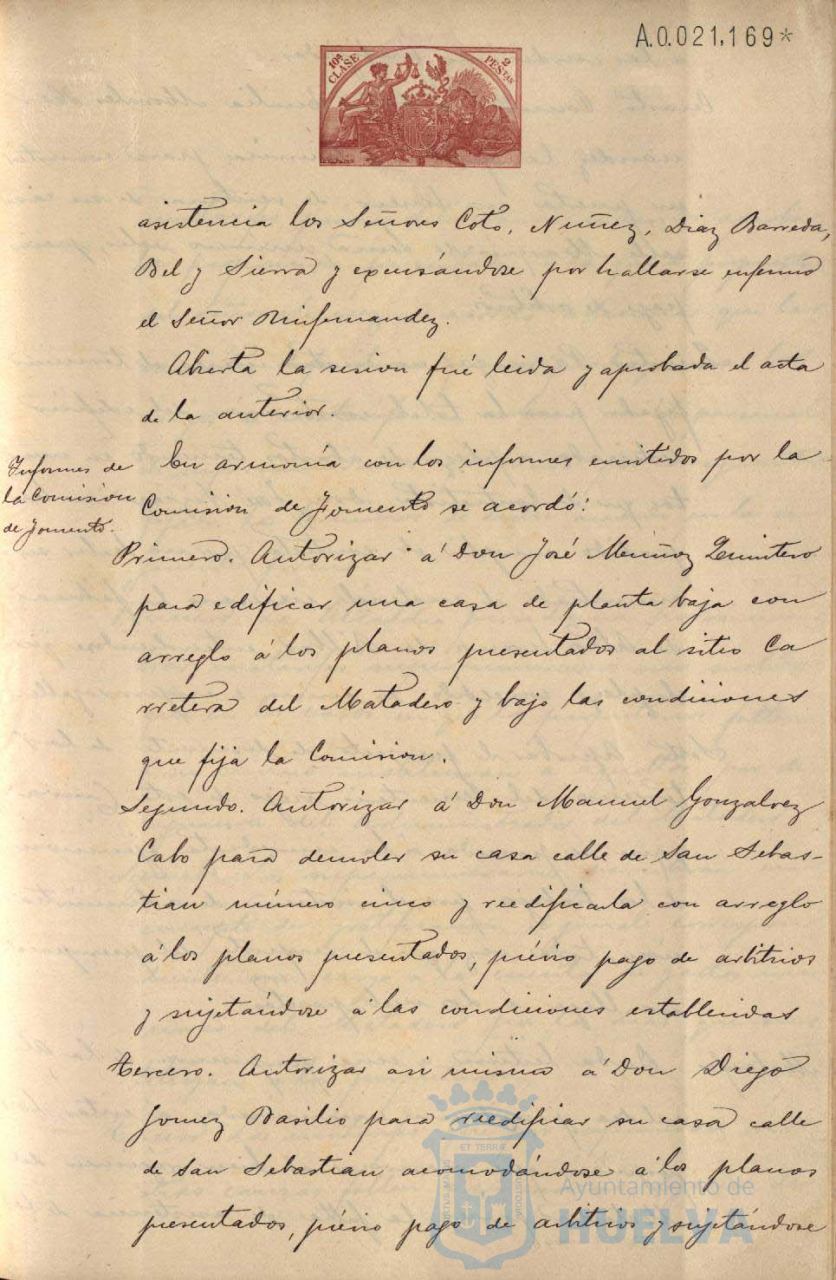 A.0.021,169*
10ª CLASE
2 PESTAS
asistencia los Señores Coto, Nuñez, Diaz Barreda,
Bel y Sierra y excusándose por hallarse enfermo
el Señor Ruifernandez.
Abierta la sesion fué leida y aprobada el acta
de la anterior.
Informes de
la Comision
de Fomento.
En armonía con los informes emitidos por la
Comision de Fomento se acordó:
Primero. Autorizar á Don José Muñoz Quintero
para edificar una casa de planta baja con
arreglo á los planos presentados al sitio Ca
rretera del Matadero y bajo las condiciones
que fija la Comision.
Segundo. Autorizar á Don Manuel Gonzalvez
Cabo para demoler su casa calle de San Sebas-
tian número cinco y reedificarla con arreglo
á los planos presentados, prévio pago de arbitrios
y sujetándose á las condiciones establecidas
tercero. Autorizar asi mismo á Don Diego
Gomez Basilio para reedificar su casa calle
de San Sebastian acomodándose á los planos
presentados, prévio pago de arbitrios y sujetándose
Ayuntamiento de
HUELVA